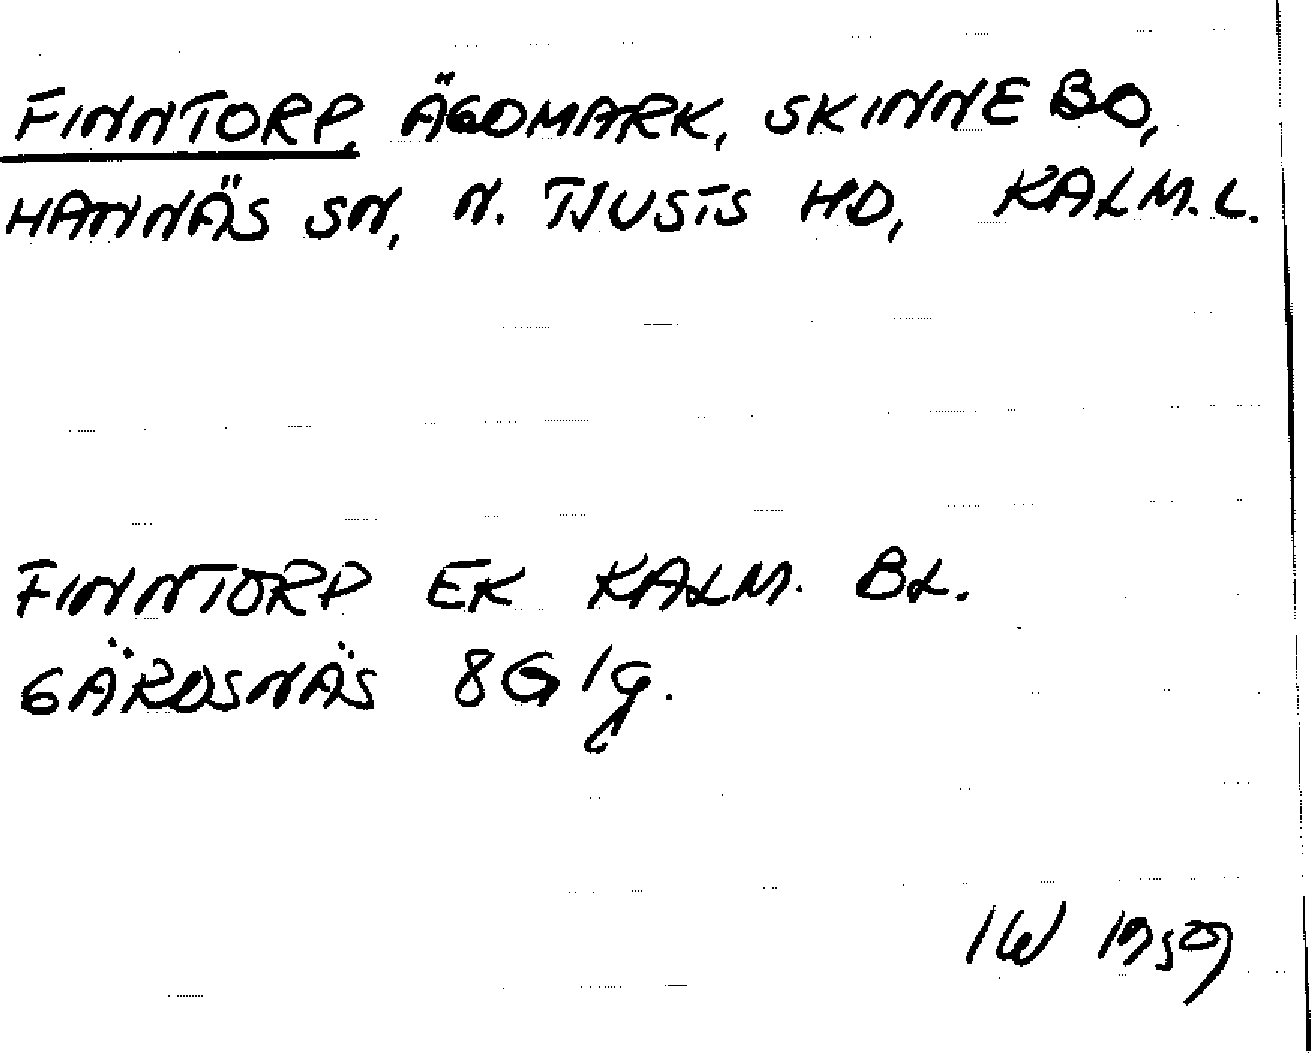 FINNTORP, ÄGOMARK, SKINNEBO,
HANNÄS SN, N. TJUSTS HD, KALM. L.
FINNTORP EK KALM. BL.
GÄRDSNÄS 8G/g.
IW 1959